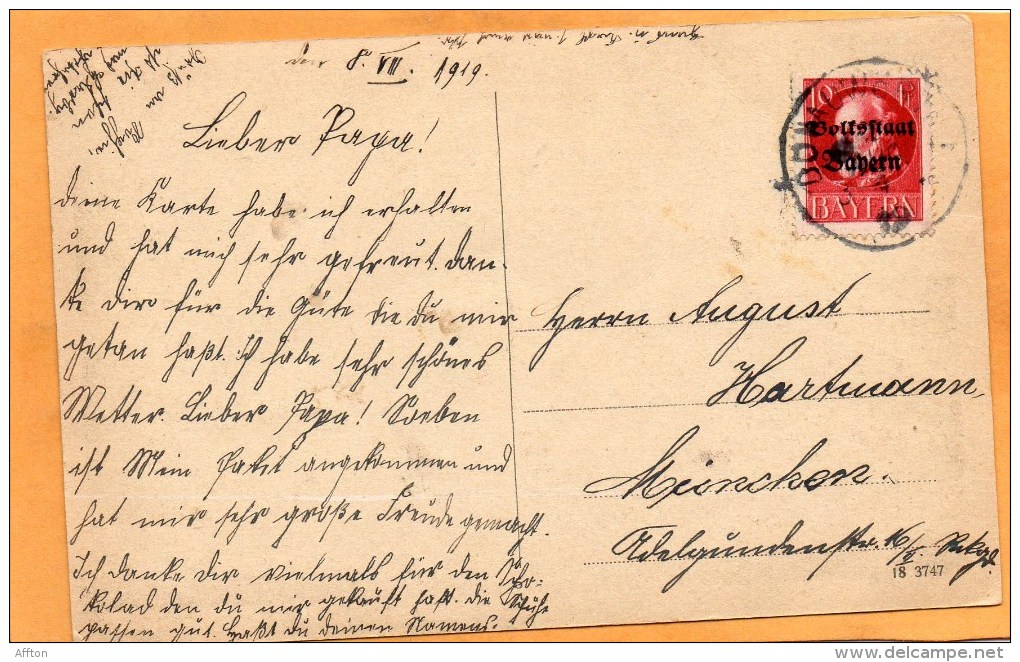 den 8. VIII. 1919.
Lieber Papa!
deine Karte habe ich erhalten
und hat mich sehr gefreut. dan-
ke dir für die Güte die du mir
getan haßt. Ich habe sehr schönes
Wetter. Lieber Papa! Soeben
ist Mein Paket angekommen und
hat mir sehr große Freude gemacht.
Ich danke dir vielmals für den Scho-
kolad den du mir gekauft hast. die Schühe
passen gut. Haßt du deinen Namens-
10 Pf
Volksstaat
Bayern
BAYERN
Herrn August
Hartmann
München.
Adelgundenstr. 16/II. Rckgd.
18 3747
Affton
delcampe.net